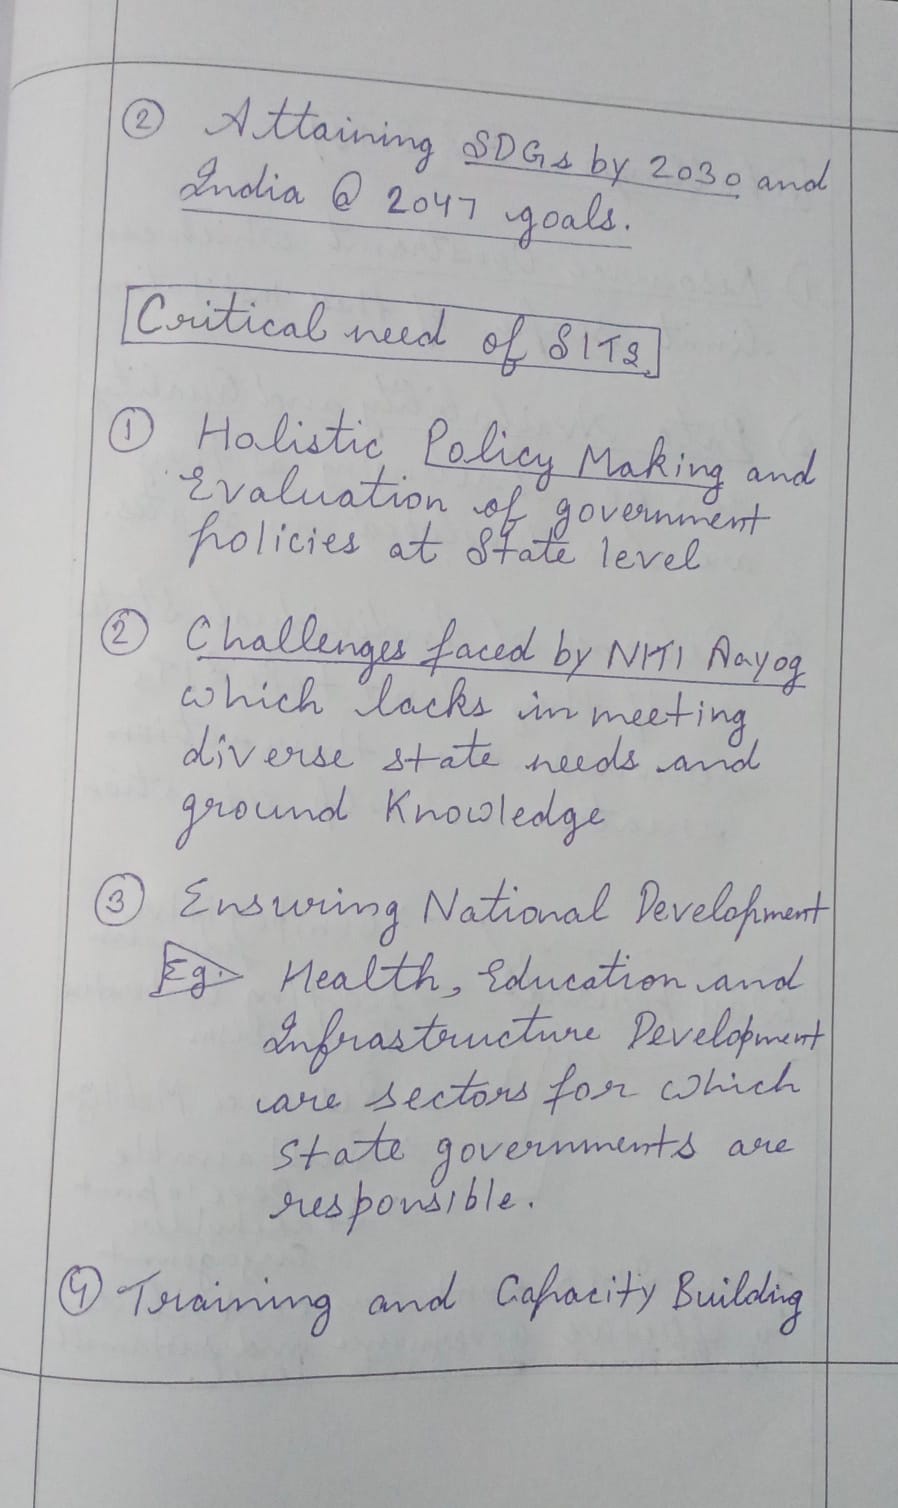 ② Attaining SDGs by 2030 and
India @ 2047 goals.
Critical need of SITs
① Holistic Policy Making and
Evaluation of government
policies at State level
② Challenges faced by NITI Aayog
which lacks in meeting
diverse state needs and
ground Knowledge
③ Ensuring National Development
Eg. Health, Education and
Infrastructure Development
are sectors for which
State governments are
responsible.
④ Training and Capacity Building